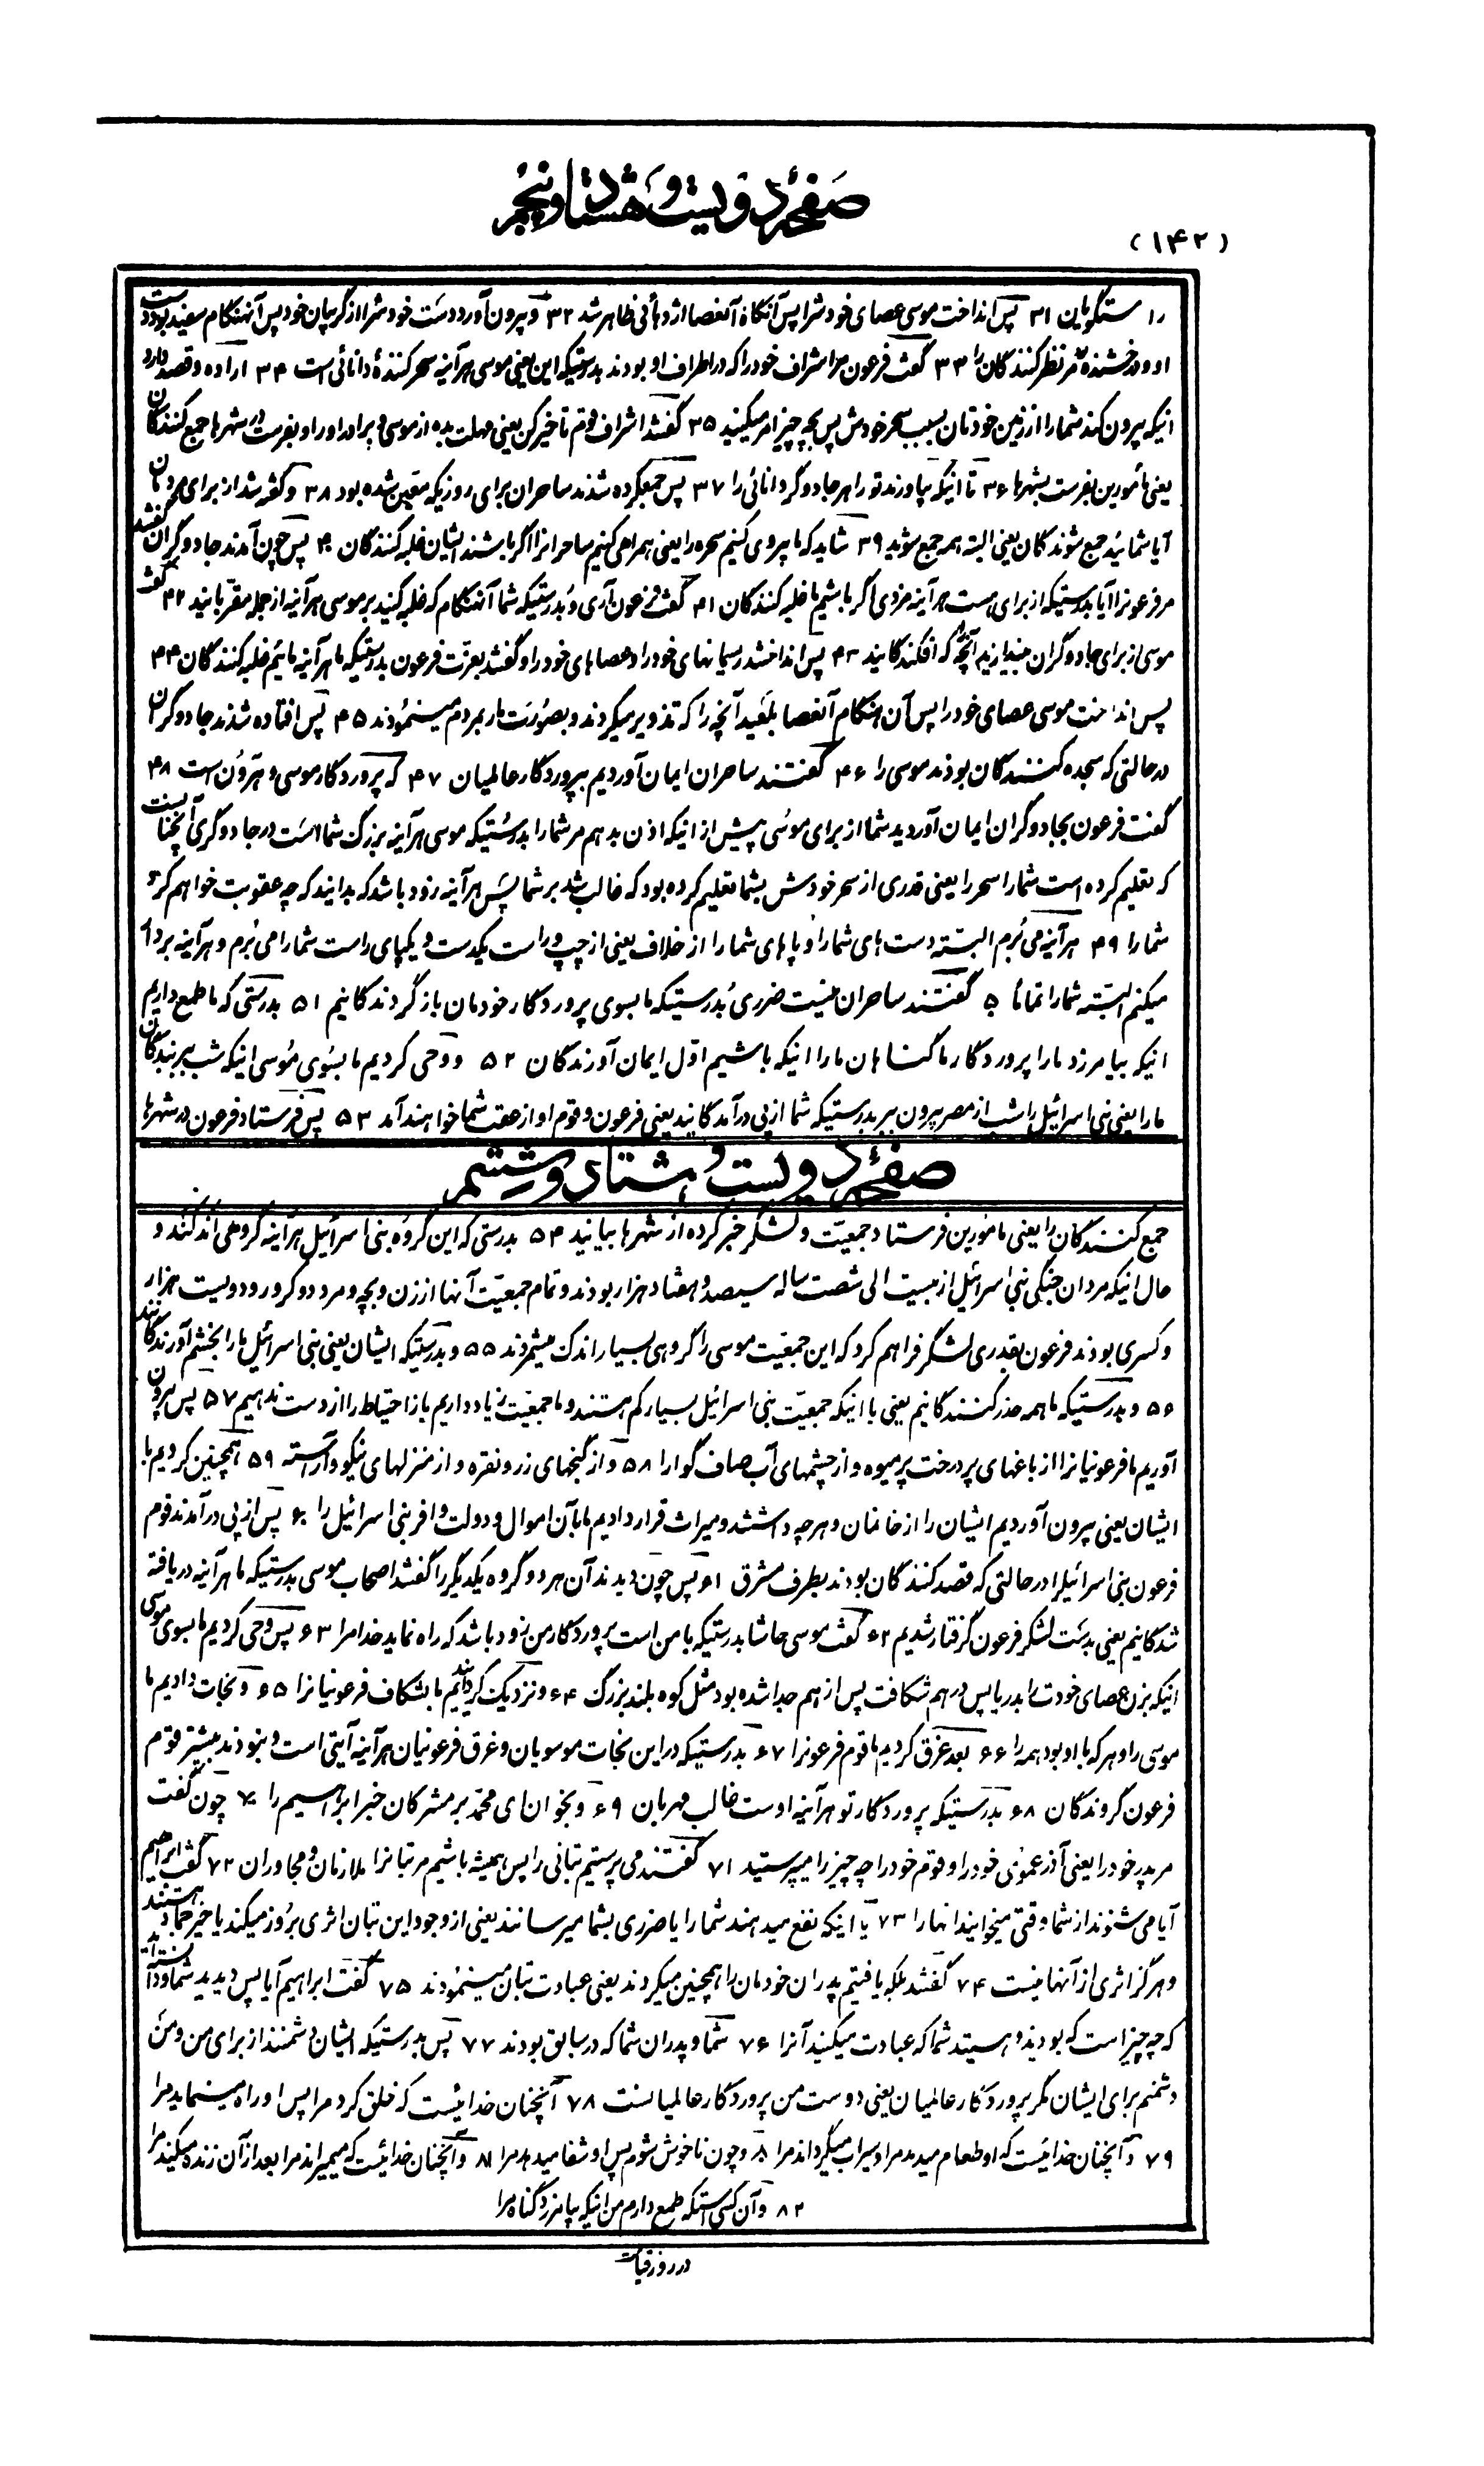 صفحهٔ دویست و هشتاد و پنجم
(۱۴۲)
راستگویان ۳۱ پس انداخت موسی عصای خود را پس آنگاه آنعصا اژدهائی ظاهر شد ۳۲ و بیرون آورد دست خود را از گریبان خود پس آنهنگام سفید بود دست
او و درخشنده مر نظر کنندگان را ۳۳ گفت فرعون مر اشراف خود را که در اطراف او بودند بدرستیکه این یعنی موسی هرآینه سحر کنندهٔ دانائی است ۳۴ اراده و قصد دارد
اینکه بیرون کند شما را از زمین خودتان بسبب سحر خودش پس بچه چیز امر میکنید ۳۵ گفتند اشراف قوم تاخیر کن یعنی مهلت بده از موسی و برادر او را و بفرست در شهرها جمع کنندگان
یعنی مأمورین بفرست بشهرها ۳۶ تا اینکه بیاورند تو را هر جادوگر دانائی را ۳۷ پس جمع کرده شدند ساحران برای روزیکه معین شده بود ۳۸ و گفته شد از برای مردمان
آیا شمائید جمع شوندگان یعنی البته همه جمع شوید ۳۹ شاید که ما پیروی کنیم سحره را یعنی همراهی کنیم ساحرانرا اگر باشند ایشان غلبه کنندگان ۴۰ پس چون آمدند جادوگران گفتند
مر فرعونرا آیا بدرستیکه از برای ماست هرآینه مزدی اگر باشیم ما غلبه کنندگان ۴۱ گفت فرعون آری و بدرستیکه شما آنهنگام که غلبه کنید بر موسی هرآینه از جمله مقربانید ۴۲ گفت
موسی از برای جادوگران بیندازید آنچه که افکنندگانید ۴۳ پس انداختند ریسمانهای خود را و عصاهای خود را و گفتند بعزت فرعون بدرستیکه ما هرآینه مائیم غلبه کنندگان ۴۴
پس انداخت موسی عصای خود را پس آن هنگام آنعصا بلعید آنچه را که تذویر میکردند و بصورت مار بمردم مینمودند ۴۵ پس افتاده شدند جادوگران
در حالتی که سجده کنندگان بودند موسی را ۴۶ گفتند ساحران ایمان آوردیم بپروردگار عالمیان ۴۷ که پروردگار موسی و هرون است ۴۸
گفت فرعون بجادوگران ایمان آوردید شما از برای موسی پیش از اینکه اذن بدهم مر شما را بدرستیکه موسی هرآینه بزرگ شما است در جادوگری آنچنانست
که تعلیم کرده است شما را سحر را یعنی قدری از سحر خودش بشما تعلیم کرده بود که غالب شد بر شما پس هرآینه زود باشد که بدانید که چه عقوبت خواهم کرد
شما را ۴۹ هرآینه می بُرم البته دست های شما را و پاهای شما را از خلاف یعنی از چپ و راست یکدست و یکپای راست شما را می بُرم و هرآینه بردار
میکنم البته شما را تماماً ۵۰ گفتند ساحران نیست ضرری بدرستیکه ما بسوی پروردگار خودمان بازگردندگانیم ۵۱ بدرستی که ما طمع داریم
اینکه بیامرزد ما را پروردگار ما گناهان ما را اینکه باشیم اوّل ایمان آورندگان ۵۲ و وحی کردیم ما بسوی موسی اینکه شب ببر بندگان
ما را یعنی بنی اسرائیل را شب از مصر بیرون ببر بدرستیکه شما از پی درآمدگانید یعنی فرعون و قوم او از عقب شما خواهند آمد ۵۳ پس فرستاد فرعون در شهرها
صفحهٔ دویست و هشتاد و ششم
جمع کنندگان را یعنی مأمورین فرستاد جمعیت و لشگر خبر کرده از شهرها بیایند ۵۴ بدرستی که این گروه بنی اسرائیل هرآینه گروهی اندکند و
حال اینکه مردان جنگی بنی اسرائیل از بیست الی شصت ساله سیصد و هفتاد هزار بودند و تمام جمعیت آنها از زن و بچه و مرد دو کرور و دویست هزار
و کسری بودند فرعون بقدری لشگر فراهم کرد که این جمعیت موسی را گروهی بسیار اندک میشمردند ۵۵ و بدرستیکه ایشان یعنی بنی اسرائیل ما را بخشم آورندگانند
۵۶ و بدرستیکه ما همه حذر کنندگانیم یعنی با اینکه جمعیت بنی اسرائیل بسیار کم هستند و ما جمعیت زیاد داریم باز احتیاط را از دست ندهیم ۵۷ پس بیرون
آوریم ما فرعونیانرا از باغهای پر درخت پر میوه و از چشمهای آب صاف گوارا ۵۸ و از گنجهای زر و نقره و از منزلهای نیکو و آراسته ۵۹ همچنین کردیم با
ایشان یعنی بیرون آوردیم ایشان را از خانمان و هر چه داشتند و میراث قرار دادیم ما بآن اموال و دولت وافر بنی اسرائیل را ۶۰ پس از پی درآمدند قوم
فرعون بنی اسرائیلرا در حالتی که قصد کنندگان بودند بطرف مشرق ۶۱ پس چون دیدند آن هر دو گروه یکدیگر را گفتند اصحاب موسی بدرستیکه ما هرآینه دریافته
شدگانیم یعنی بدست لشگر فرعون گرفتار شدیم ۶۲ گفت موسی حاشا بدرستیکه با من است پروردگار من زود باشد که راه نماید خدا مرا ۶۳ پس وحی کردیم ما بسوی موسی
اینکه بزن عصای خودت را بدریا پس در هم شکافت پس از هم جدا شده بود مثل کوه بلند بزرگ ۶۴ و نزدیک گردانیدیم ما بشکاف فرعونیانرا ۶۵ و نجات دادیم ما
موسی را و هر که با او بود همه را ۶۶ بعد غرق کردیم ما قوم فرعونرا ۶۷ بدرستیکه در این نجات موسویان و غرق فرعونیان هرآینه آیتی است و نبودند بیشتر قوم
فرعون گروندگان ۶۸ بدرستیکه پروردگار تو هرآینه اوست غالب مهربان ۶۹ و بخوان ای محمّد بر مشرکان خبر ابراهیم را ۷۰ چون گفت
مر پدر خود را یعنی آذر عموی خود را و قوم خود را چه چیز را میپرستید ۷۱ گفتند می پرستیم بتانی را پس همیشه باشیم مر بتانرا ملازمان و مجاوران ۷۲ گفت ابراهیم
آیا می شنوند از شما وقتی میخوانید انها را ۷۳ یا اینکه نفع میدهند شما را یا ضرری بشما میرسانند یعنی از وجود این بتان اثری بروز میکند یا خیر جماد هستند
و هرگز اثری از آنها نیست ۷۴ گفتند بلکه یافتیم پدران خودمان را همچنین میکردند یعنی عبادت بتان مینمودند ۷۵ گفت ابراهیم آیا پس دیدید شما و دانسته‌اید
که چه چیز است که بودید و هستید شما که عبادت میکنید آنرا ۷۶ شما و پدران شما که در سابق بودند ۷۷ پس بدرستیکه ایشان دشمنند از برای من و من
دشمنم برای ایشان مگر پروردگار عالمیان یعنی دوست من پروردگار عالمیانست ۷۸ آنچنان خدائیست که خلق کرد مرا پس او راه مینماید مرا
۷۹ و آنچنان خدائیست که او طعام میدهد مرا و سیراب میگرداند مرا ۸۰ و چون ناخوش شوم پس او شفا میدهد مرا ۸۱ و آنچنان خدائیست که میمیراند مرا بعد از آن زنده میکند مرا
۸۲ و آن کسی استکه طمع دارم من اینکه بیامرزد گناه مرا
در روز قیامت